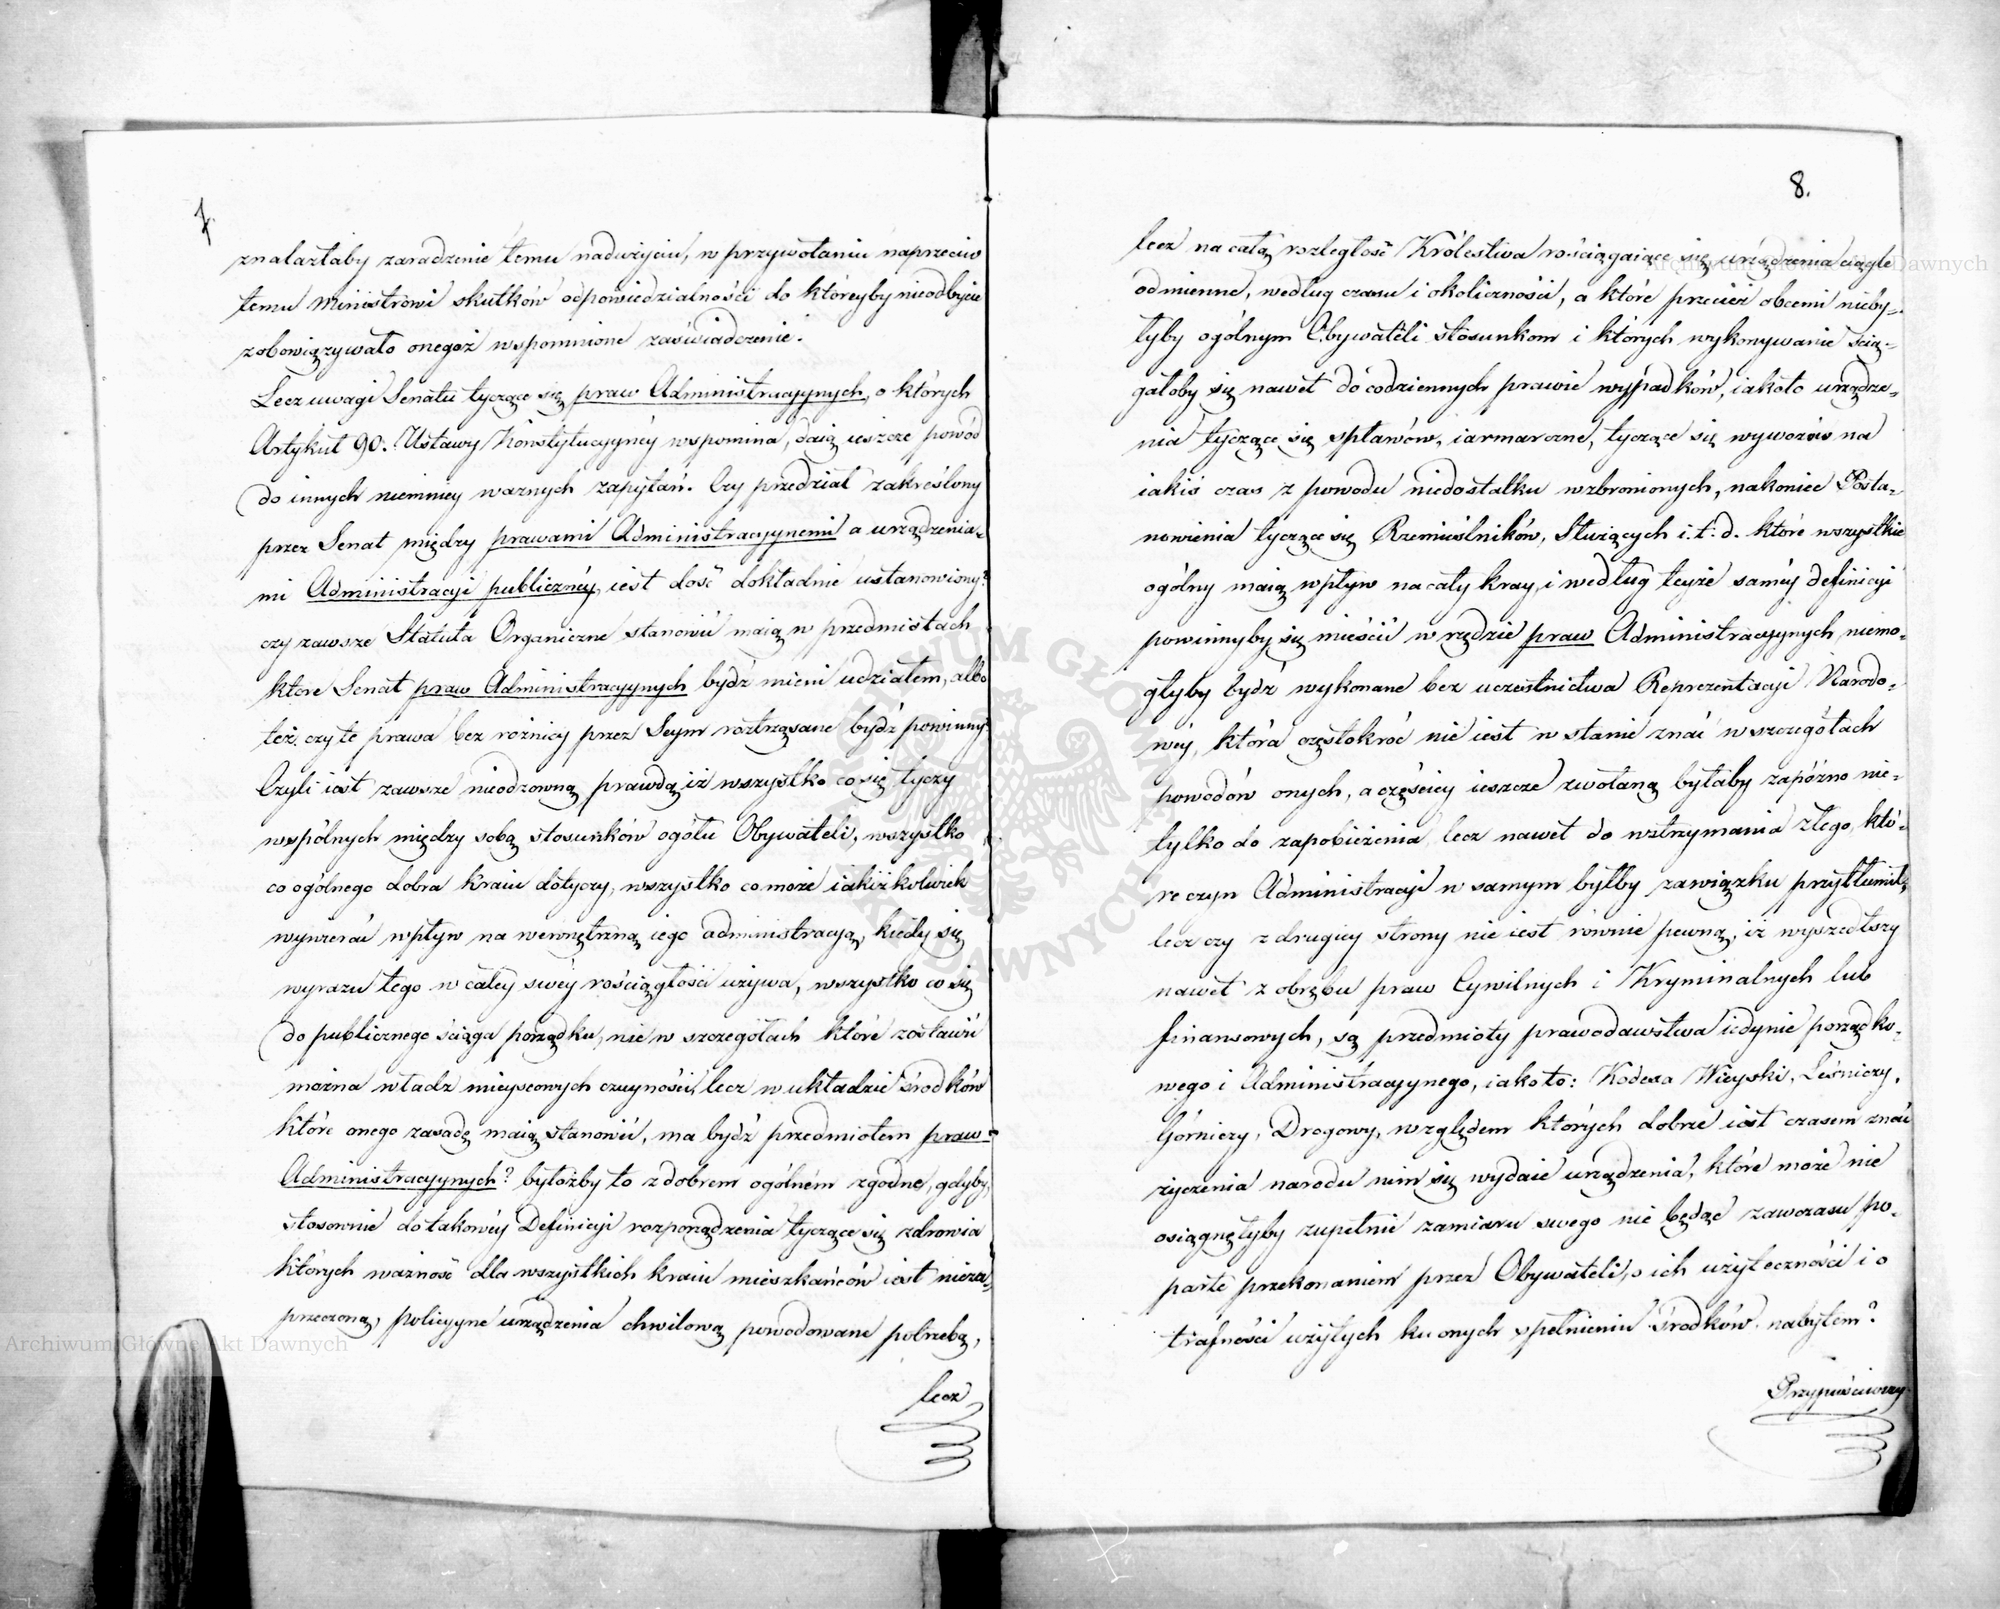 7.
znalazłaby zaradzenie temu nadużyciu, w przywołaniu naprzeciw
temu Ministrowi skutków odpowiedzialności do któreyby nieodbycie
zobowiązywało onegoż wspomnione zaświadczenie.
Lecz uwagi Senatu tyczące się praw Administracyynych, o których
Artykuł 90. Ustawy Konstytucyynéy wspomina, daią ieszcze powód
do innych niemniey ważnych zapytań. Czy przedział zakreślony
przez Senat między prawami Administracyynemi a urządzenia-
mi Administracyi publicznéy, iest dość dokładnie ustanowiony?
czy zawsze Statuta Organiczne stanowić maią w przedmiotach
które Senat praw Administracyynych bydź mieni udziałem, albo
też czy te prawa bez różnicy przez Seym roztrząsane bydź powinny?
Czyli iest zawsze nieodzowną prawdą iż wszystko co się tyczy
wspólnych między sobą stosunków ogółu Obywateli, wszystko
co ogólnego dobra kraiu dotyczy, wszystko co może iakiżkolwiek
wywierać wpływ na wewnętrzną iego administracyą, kiedy się
wyrazu tego w całey swéy rościągłości używa, wszystko co się
do publicznego ściąga porządku, nie w szczegółach które zostawić
można władz mieyscowych czuyności, lecz w układzie środków
które onego zasadę maią stanowić, ma bydź przedmiotem praw
Administracyynych? byłożby to z dobrem ogólném zgodne, gdyby,
stosownie do takowéy Definicyi rozporządzenia tyczące się zdrowia
których ważność dla wszystkich kraiu mieszkańców iest nieza-
przeczoną, policyyne urządzenia chwilową powodowane potrzebą,
lecz
8.
lecz na całą rozległość Królestwa rościągaiące się urządzenia ciągle
odmienne, według czasu i okoliczności, a które przecież obcemi nieby-
łyby ogólnym Obywateli stosunkom i których wykonywanie ścią-
gałoby się nawet do codziennych prawie wypadków, iakoto urządze-
nia tyczące się spławów, iarmarczne, tyczące się wywozów na
iakiś czas z powodu niedostatku wzbronionych, nakoniec Posta-
nowienia tyczące się Rzemieślników, Służących i.t.d. które wszystkie
ogólny maią wpływ na cały kray, i według teyże saméy definicyi
powinnyby się mieścić w rzędzie praw Administracyynych niemo-
głyby bydź wykonane bez uczestnictwa Reprezentacyi Narodo-
wéy, która częstokroć nie iest w stanie znać w szczegółach
powodów onych, a częściey ieszcze zwołaną byłaby zapóźno nie-
tylko do zapobieżenia, lecz nawet do wstrzymania złego, któ-
re czyn Administracyi w samym byłby zawiązku przytłumił,
lecz czy z drugiey strony nie iest równie pewną, iż wyszedłszy
nawet z obrębu praw Cywilnych i Kryminalnych lub
finansowych, są przedmioty prawodawstwa iedynie porządko-
wego i Administracyynego, iako to: Kodexa Wieyski, Leśniczy,
Górniczy, Drogowy, względem których dobrze iest czasem znać
życzenia narodu nim się wydaie urządzenia, które może nie
osiągnęłyby zupełnie zamiaru swego nie będąc zawczasu po-
parte przekonaniem przez Obywateli, o ich użyteczności i o
trafności użytych ku onych spełnieniu środków nabytem?
Przypuściwszy
Archiwum Główne Akt Dawnych